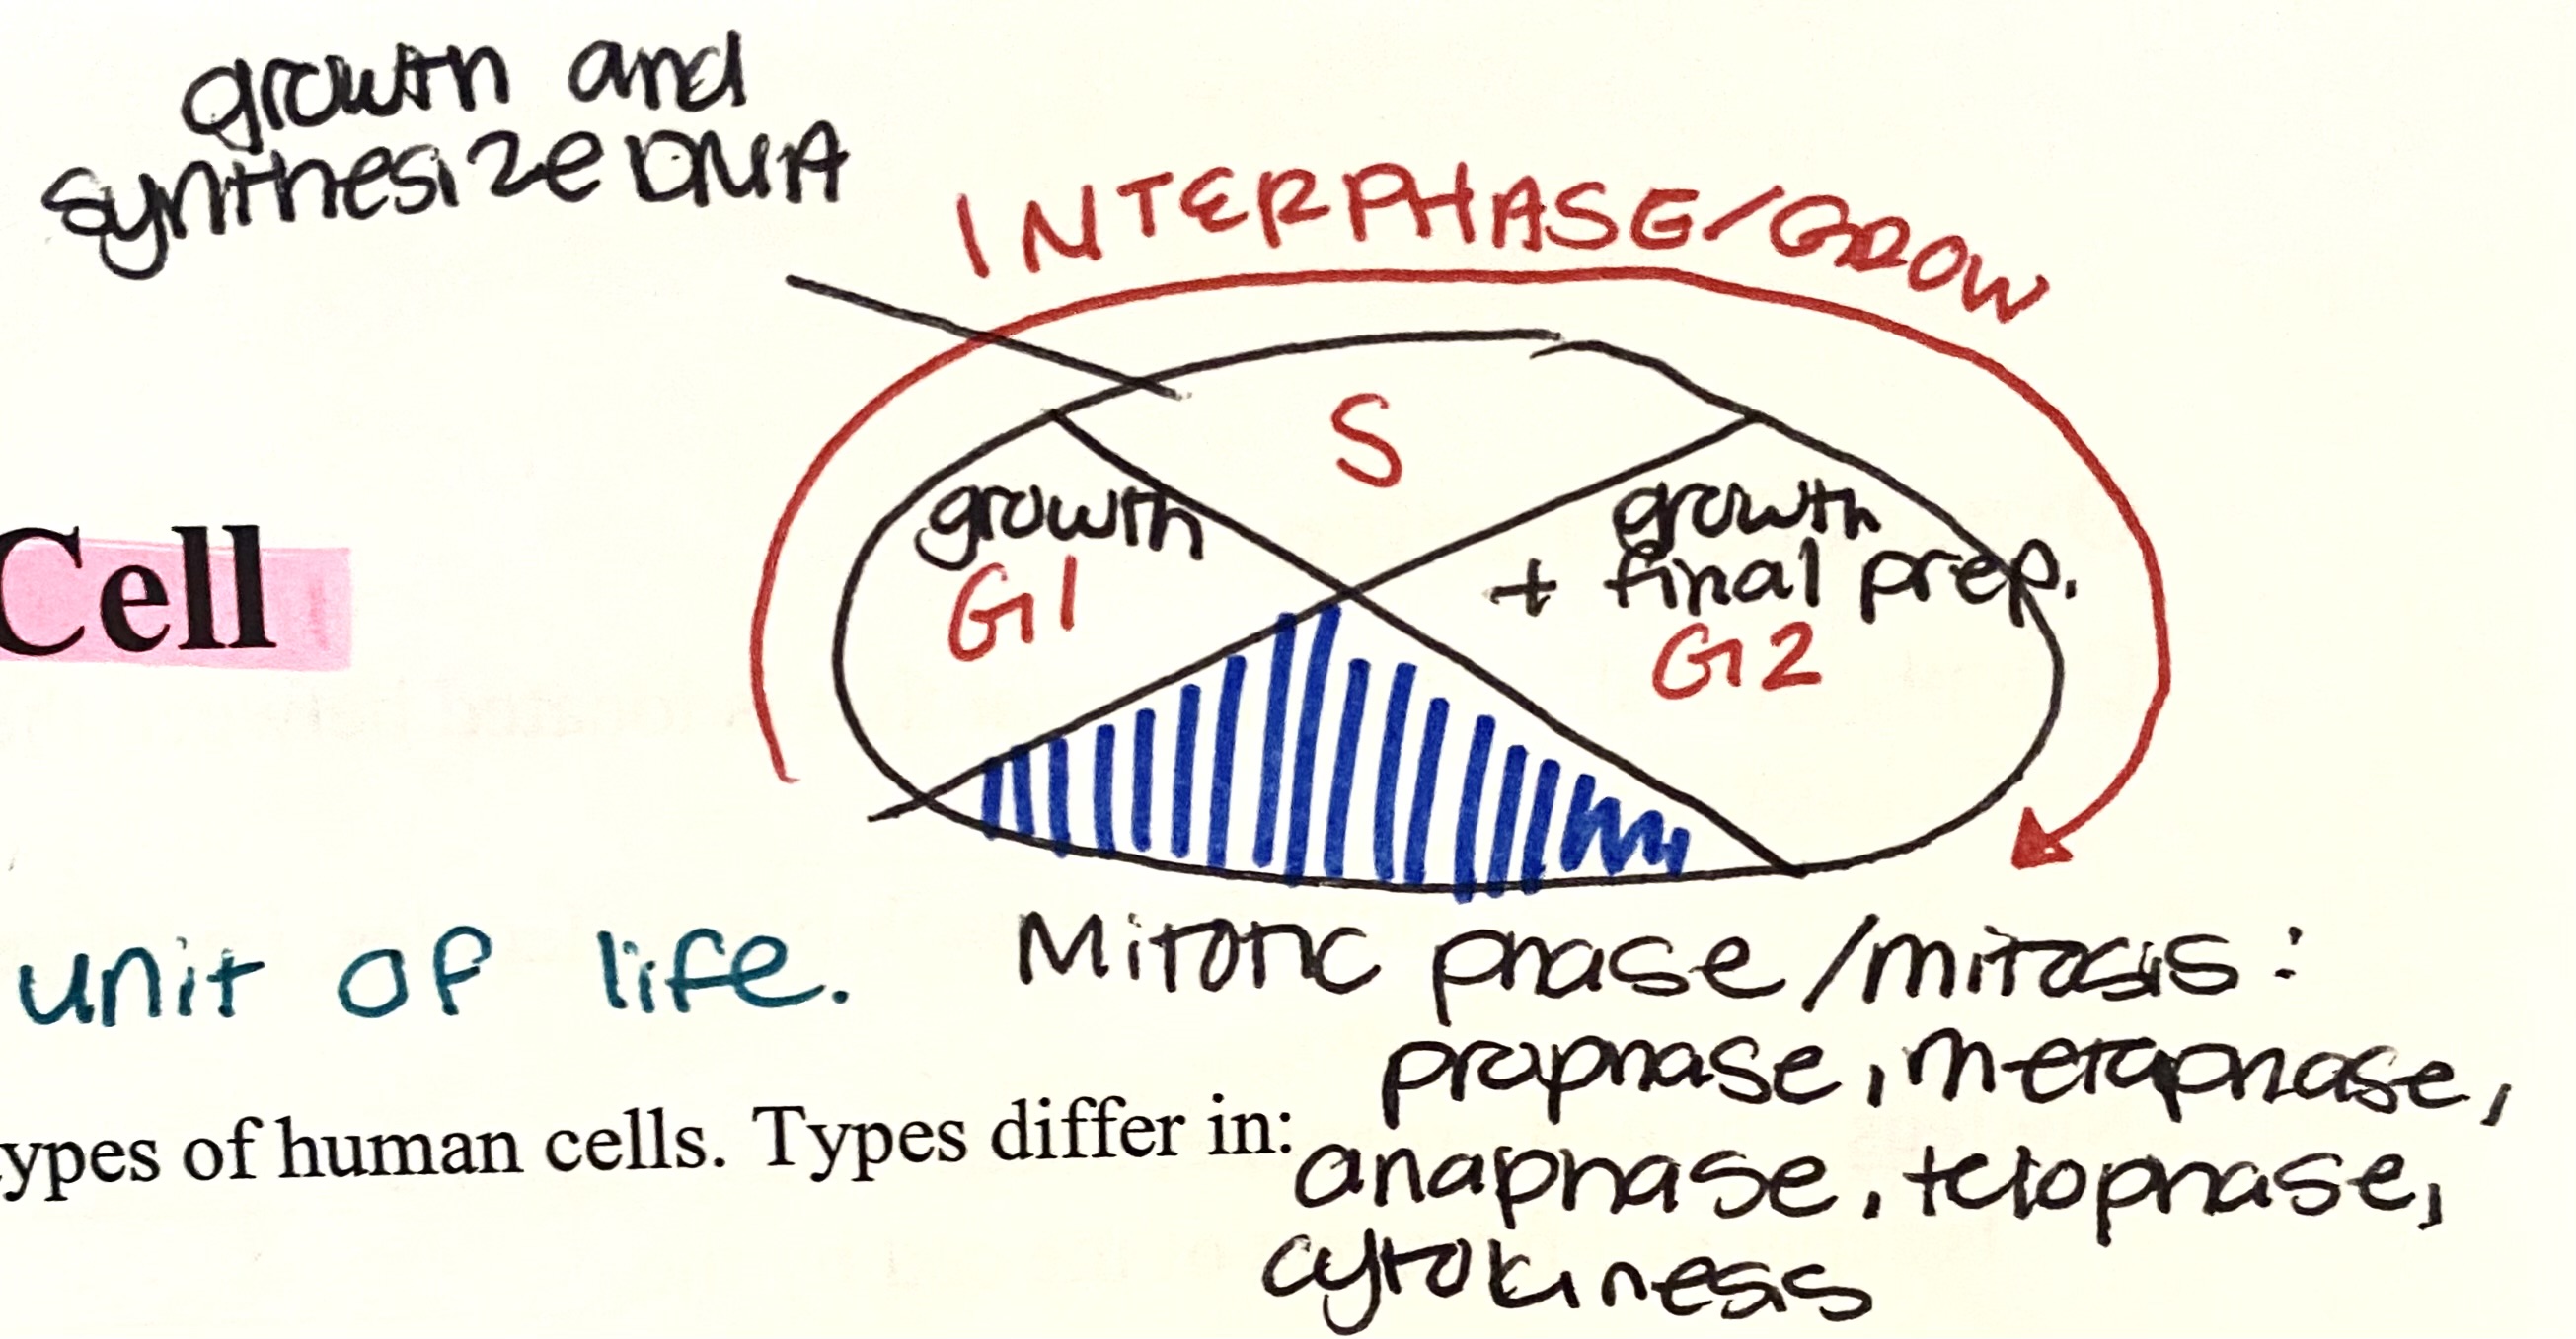 growth and
synthesize DNA
INTERPHASE/GROW
S
growth
G1
growth
+ final prep.
G2
Cell
unit of life.
Mitotic phase/mitosis:
prophase, metaphase,
ypes of human cells. Types differ in:
anaphase, telophase,
cytokinesis